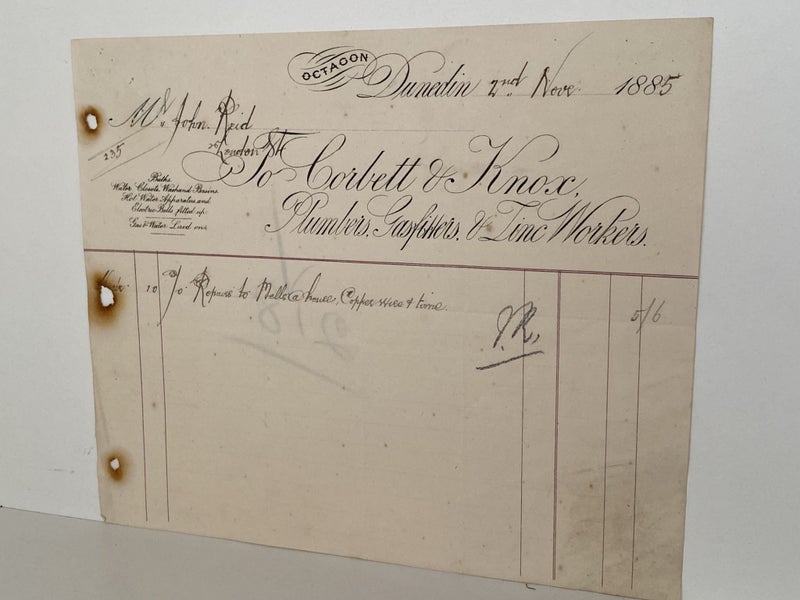 OCTAGON
Dunedin 2nd Nov 1885
Mr John Reid
235
London St
To Corbett & Knox,
Baths.
Water Closets, Washhand Basins
Hot Water Apparatus and
Electric Bells fitted up.
Gas & Water Laid on.
Plumbers, Gasfitters, & Zinc Workers.
10 To Repairs to Bells @ house, Copper wire & time 5/6
J.R,